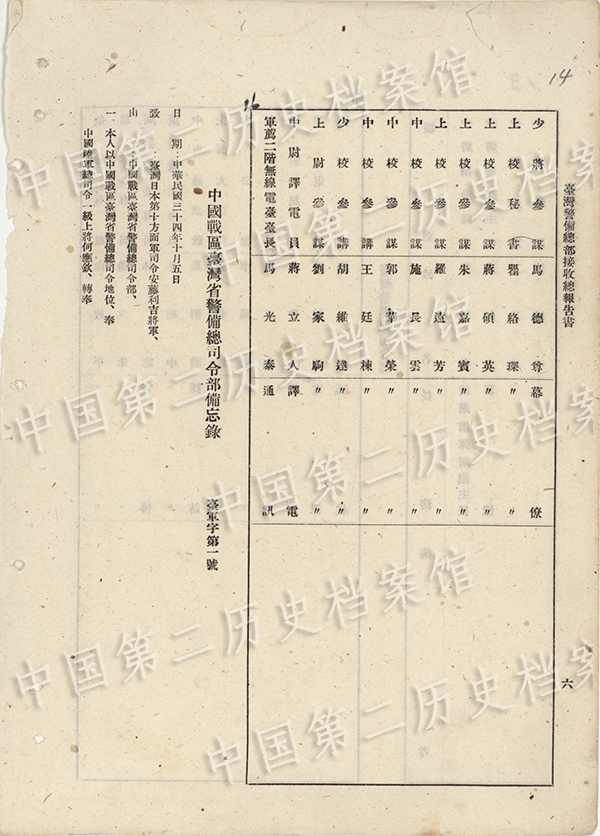 14
臺灣警備總部接收總報告書
六
少將參謀 馬德尊 幕僚
上校秘書 瞿絡琛 〃 〃
上校參謀 蔣碩英 〃 〃
上校參謀 朱嘉賓 〃 〃
上校參謀 羅遠芳 〃 〃
中校參謀 施長雲 〃 〃
中校參謀 郭華榮 〃 〃
中校參謀 王廷棟 〃 〃
少校參謀 胡維達 〃 〃
上尉參謀 劉家駒 〃 〃
中尉譯電員 蔣立人 譯電
軍薦二階無線電臺臺長 馬光秦 通訊
中國戰區臺灣省警備總司令部備忘錄 臺軍字第一號
日期、中華民國三十四年十月五日
致、臺灣日本第十方面軍司令安藤利吉將軍、
由、中國戰區臺灣省警備總司令部、
一 本人以中國戰區臺灣省警備總司令地位、奉
中國陸軍總司令一級上將何應欽、轉奉
中国第二历史档案馆
中国第二历史档案馆
中国第二历史档案馆
中国第二历史档案馆
中国第二历史档案馆
中国第二历史档案馆